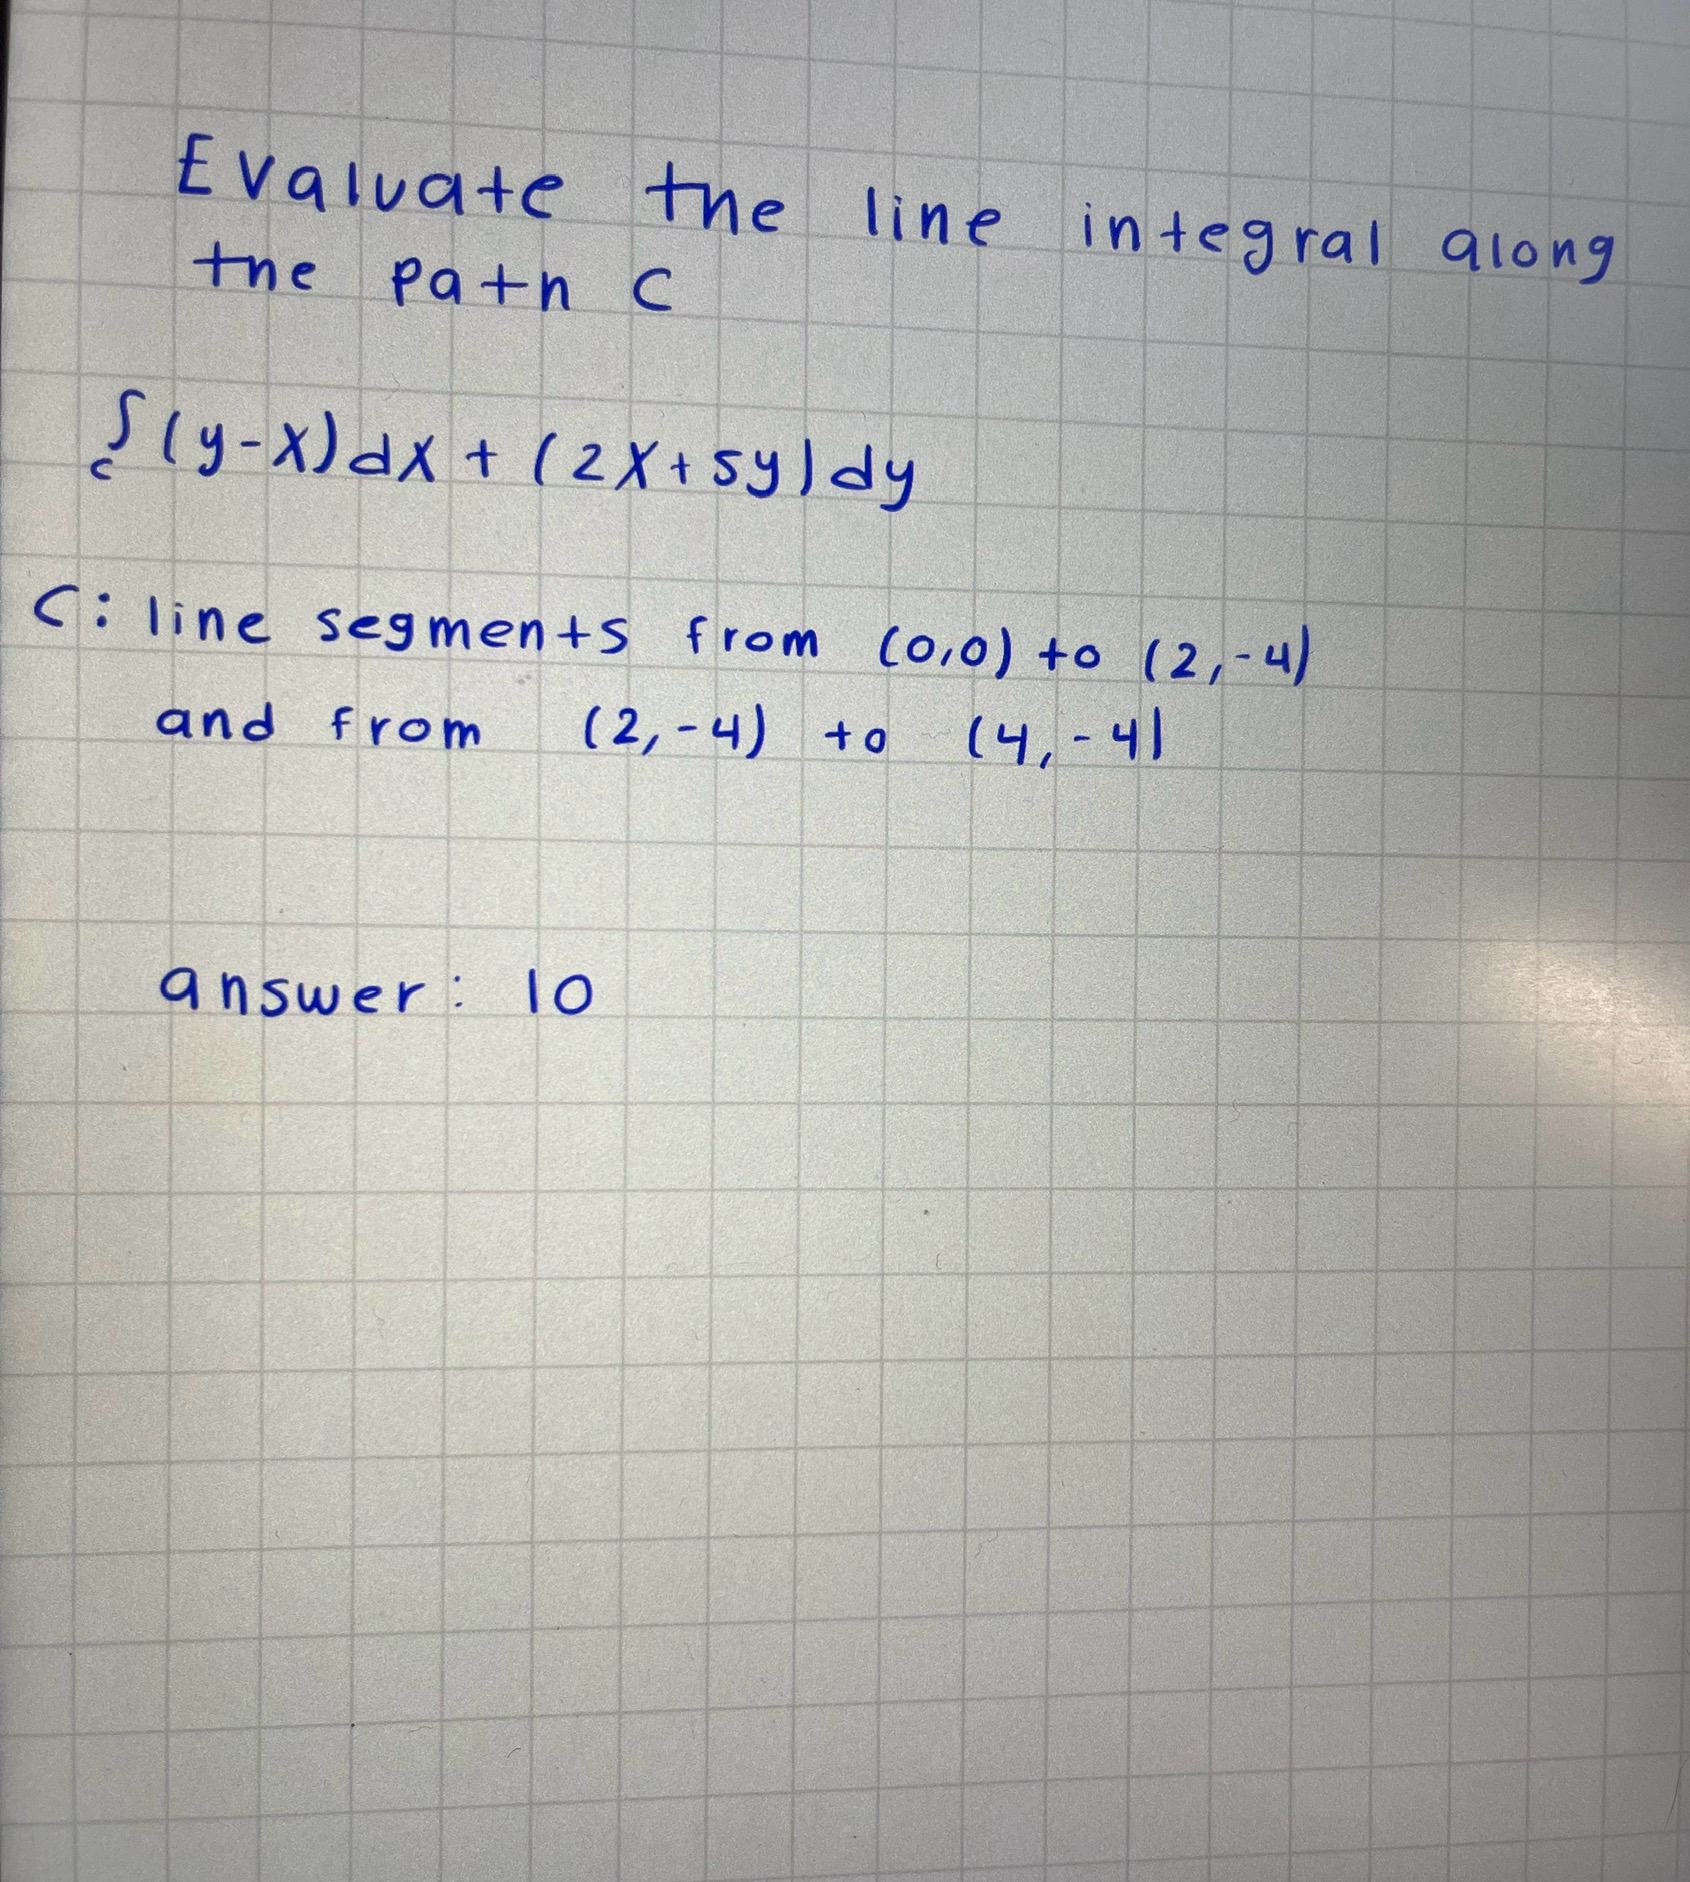 Evaluate the line integral along
the path C
∫ (y-x)dx + (2x+5y)dy
c
C: line segments from (0,0) to (2,-4)
and from (2,-4) to (4,-4)
answer: 10